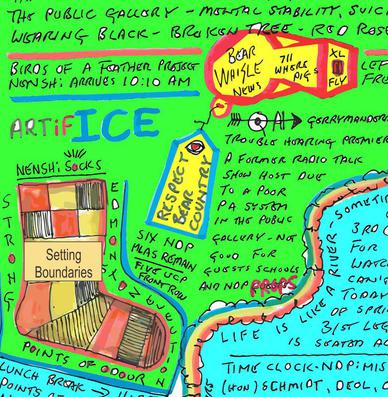 THE PUBLIC GALLERY - MENTAL STABILITY, SUICI
WEARING BLACK - BROKEN TREE - RED ROSE
BIRDS OF A FEATHER PROJECT
NENSHI ARRIVES 10:10 AM
BEAR
WHISLE
NEWS
711
WHERE
PIGS
XL
FLY
LEF
FRE
ARTiFICE
AI
GERRYMANDER
NENSHI SOCKS
STRONG
EDMONTON
Setting
Boundaries
POINTS OF ODOUR
RESPECT
BEAR
COUNTRY
TROUBLE HEARING PREMIER
A FORMER RADIO TALK
SHOW HOST DUE
TO A POOR
P.A SYSTEM
IN THE PUBLIC
GALLERY - NOT
GOOD FOR
GUESTS SCHOOLS
AND NDP PROPS
SIX NDP
MLAS REMAIN
FIVE UCP
FRONT ROW
LIFE IS LIKE A RIVER - SOMETIM
3RD
FOR
WATC
CAN'
TODAY
OF SPRI
31/ST LEG
IS SEATED A
LUNCH BREAK
POINTS OF
TIME CLOCK - NDP: MIS
(HON) SCHMIDT, DEOL,